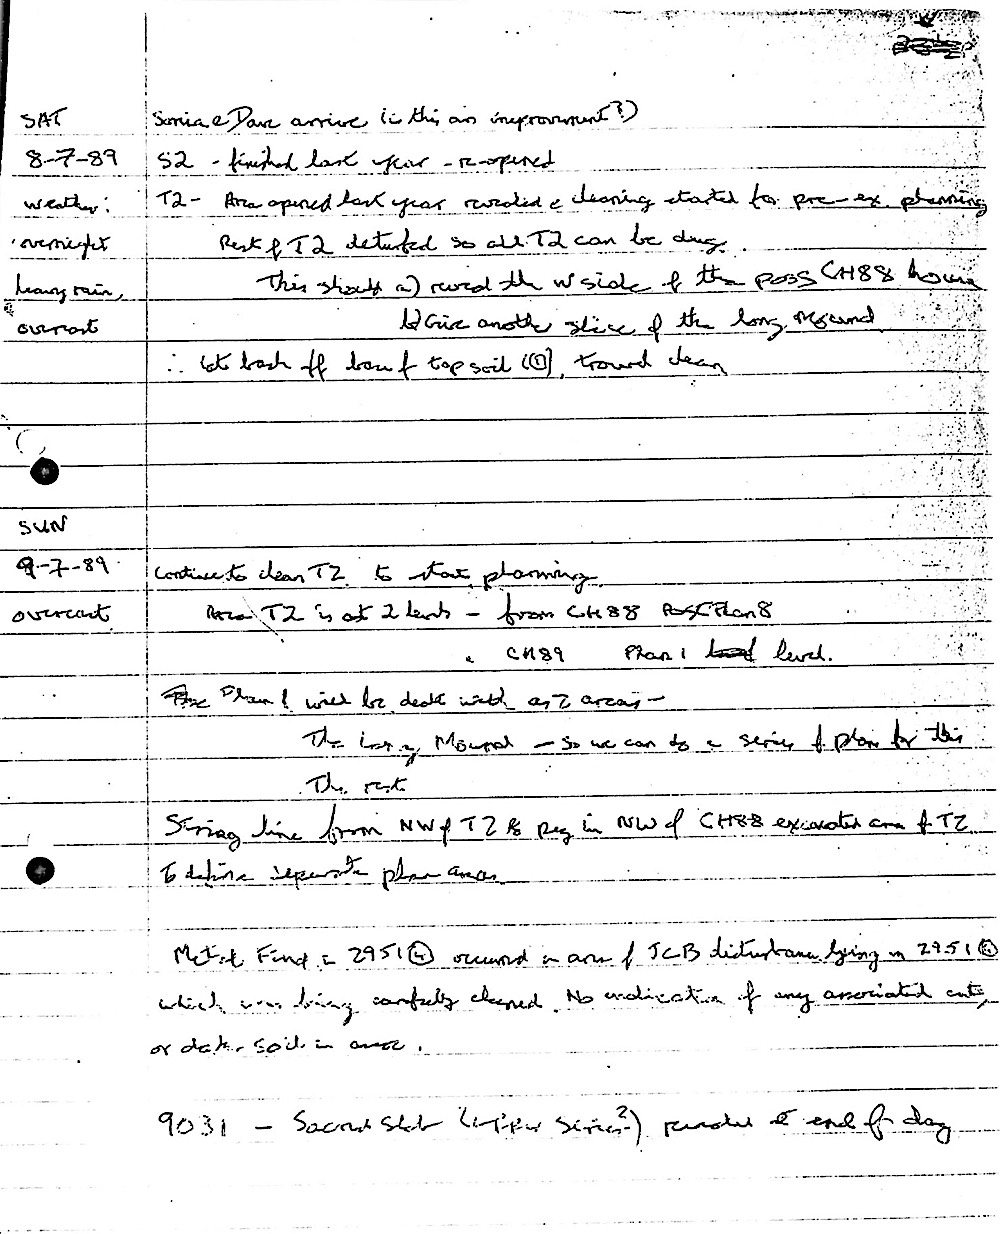 SAT
Sonia & Dave arrive (is this an improvement?)
8-7-89
S2 - finished last year - re-opened
weather:
T2 - Area opened last year revealed & cleaning started for pre-ex. planning
overnight
Rest of T2 deturfed so all T2 can be dug.
heavy rain,
This should a) reveal the W side of the poss CH88 house
overcast
b) Give another slice of the long mound
∴ back off base of top soil (①), trowel clean
SUN
9-7-89
Continue to clean T2 to start planning
overcast
Area T2 is at 2 levels - from CH88 Post Plan 8
" CH89 Plan 1 level.
Plan 1 will be dealt with as 2 areas -
The Long Mound - so we can do a series of plans for this
The rest
String line from NW of T2 to peg in NW of CH88 excavated area of T2
To define separate plan areas
Metal Find in 2951 ④ occurred in area of JCB disturbance lying in 2951 ④
which was being carefully cleaned. No indication of any associated cuts,
or dark soil in area.
9031 - Second Slot (upper series?) revealed at end of day